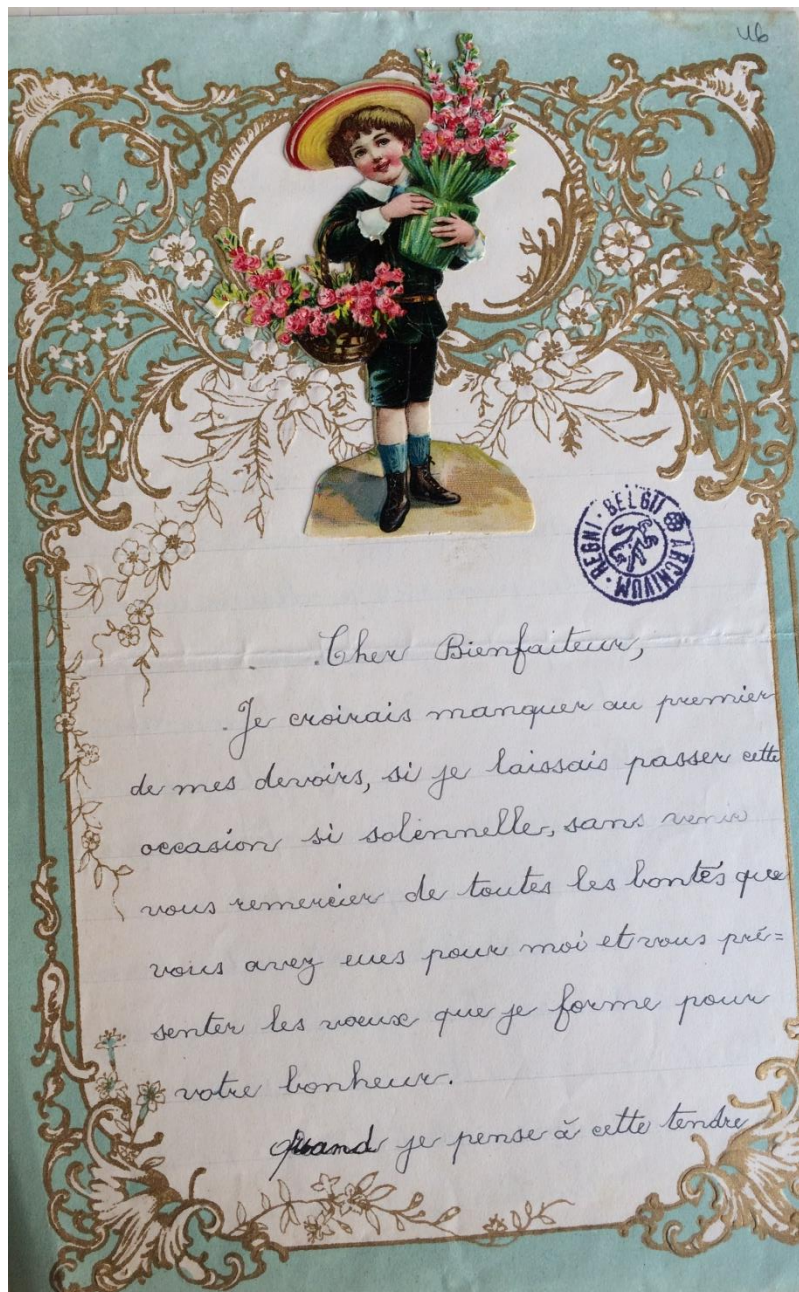 46
ARCHIVUM · REGNI · BELGII
Cher Bienfaiteur,
Je croirais manquer au premier
de mes devoirs, si je laissais passer cette
occasion si solennelle, sans venir
vous remercier de toutes les bontés que
vous avez eues pour moi et vous pré=
senter les vœux que je forme pour
votre bonheur.
Quand je pense à cette tendre